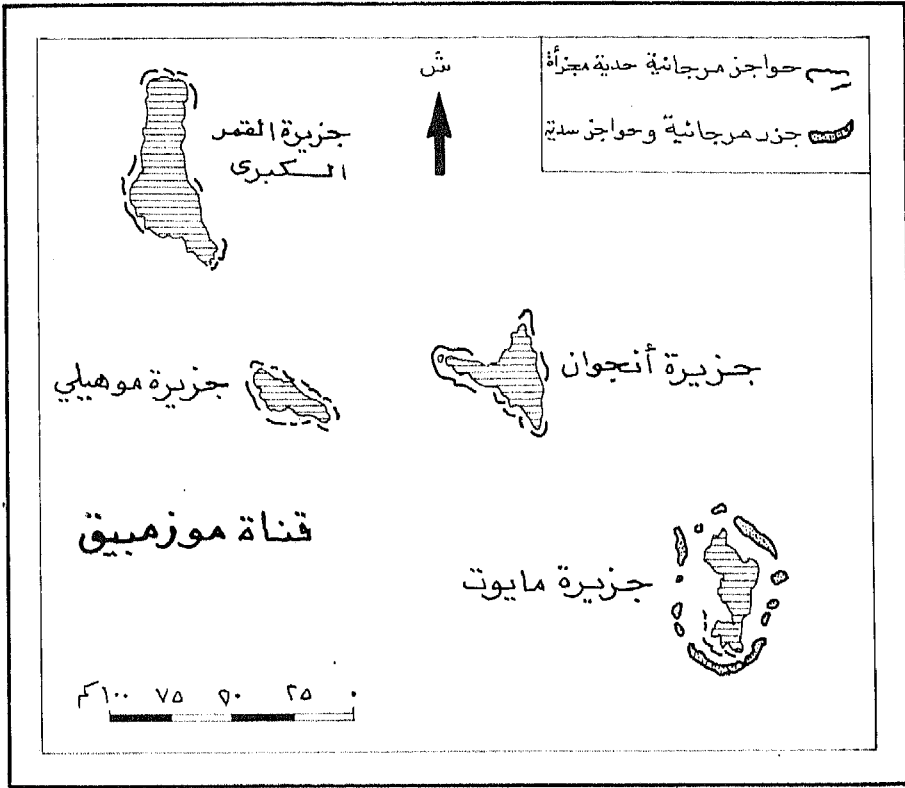 حواجز مرجانية حدية مجزأة
جزر مرجانية وحواجز سدية
ش
جزيرة القمر
الكبرى
جزيرة أنجوان
جزيرة موهيلي
قناة موزمبيق
جزيرة مايوت
٠ ٢٥ ٥٠ ٧٥ ١٠٠ كم